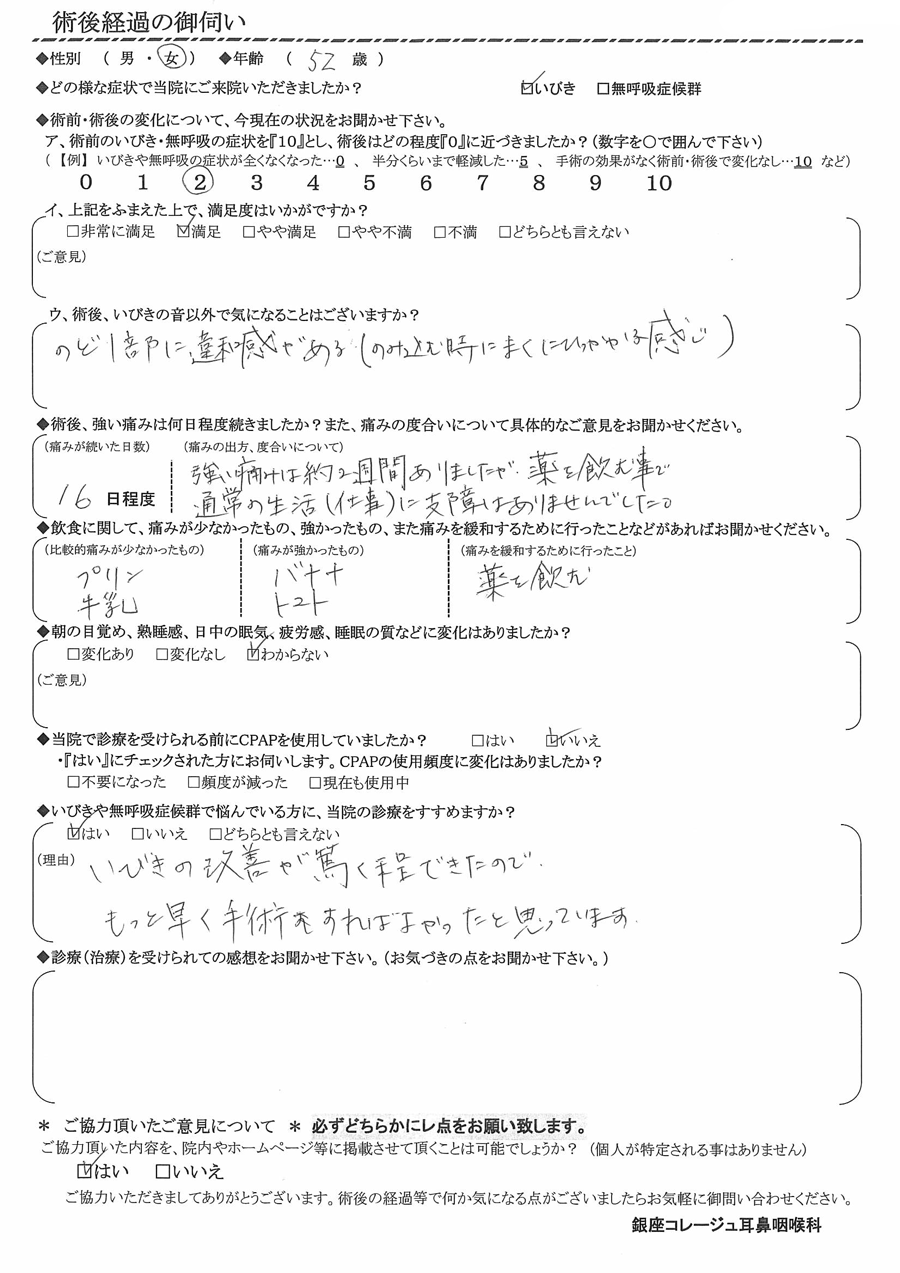 術後経過の御伺い
◆性別 ( 男 ・ 女 ) ◆年齢 ( 52 歳 )
◆どの様な症状で当院にご来院いただきましたか? ☑いびき □無呼吸症候群
◆術前・術後の変化について、今現在の状況をお聞かせ下さい。
ア、術前のいびき・無呼吸の症状を『10』とし、術後はどの程度『0』に近づきましたか?(数字を〇で囲んで下さい)
(【例】いびきや無呼吸の症状が全くなくなった…0 、 半分くらいまで軽減した…5 、 手術の効果がなく術前・術後で変化なし…10 など)
0 1 2 3 4 5 6 7 8 9 10
イ、上記をふまえた上で、満足度はいかがですか?
□非常に満足 ☑満足 □やや満足 □やや不満 □不満 □どちらとも言えない
(ご意見)
ウ、術後、いびきの音以外で気になることはございますか?
のど1部に違和感がある(のみ込む時にまくにひっかかる感じ)
◆術後、強い痛みは何日程度続きましたか?また、痛みの度合いについて具体的なご意見をお聞かせください。
(痛みが続いた日数) (痛みの出方、度合いについて)
強い痛みは約2週間ありましたが、薬を飲む事で
16 日程度 通常の生活(仕事)に支障はありませんでした。
◆飲食に関して、痛みが少なかったもの、強かったもの、また痛みを緩和するために行ったことなどがあればお聞かせください。
(比較的痛みが少なかったもの) (痛みが強かったもの) (痛みを緩和するために行ったこと)
プリン バナナ 薬を飲む
牛乳 トマト
◆朝の目覚め、熟睡感、日中の眠気、疲労感、睡眠の質などに変化はありましたか?
□変化あり □変化なし ☑わからない
(ご意見)
◆当院で診療を受けられる前にCPAPを使用していましたか? □はい ☑いいえ
・『はい』にチェックされた方にお伺いします。CPAPの使用頻度に変化はありましたか?
□不要になった □頻度が減った □現在も使用中
◆いびきや無呼吸症候群で悩んでいる方に、当院の診療をすすめますか?
☑はい □いいえ □どちらとも言えない
(理由) いびきの改善が驚く程できたので、
もっと早く手術をすればよかったと思っています。
◆診療(治療)を受けられての感想をお聞かせ下さい。(お気づきの点をお聞かせ下さい。)
＊ ご協力頂いたご意見について ＊ 必ずどちらかにレ点をお願い致します。
ご協力頂いた内容を、院内やホームページ等に掲載させて頂くことは可能でしょうか? (個人が特定される事はありません)
☑はい □いいえ
ご協力いただきましてありがとうございます。術後の経過等で何か気になる点がございましたらお気軽に御問い合わせください。
銀座コレージュ耳鼻咽喉科